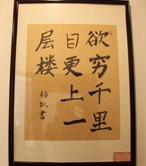 欲穷千里
目更上一
层楼